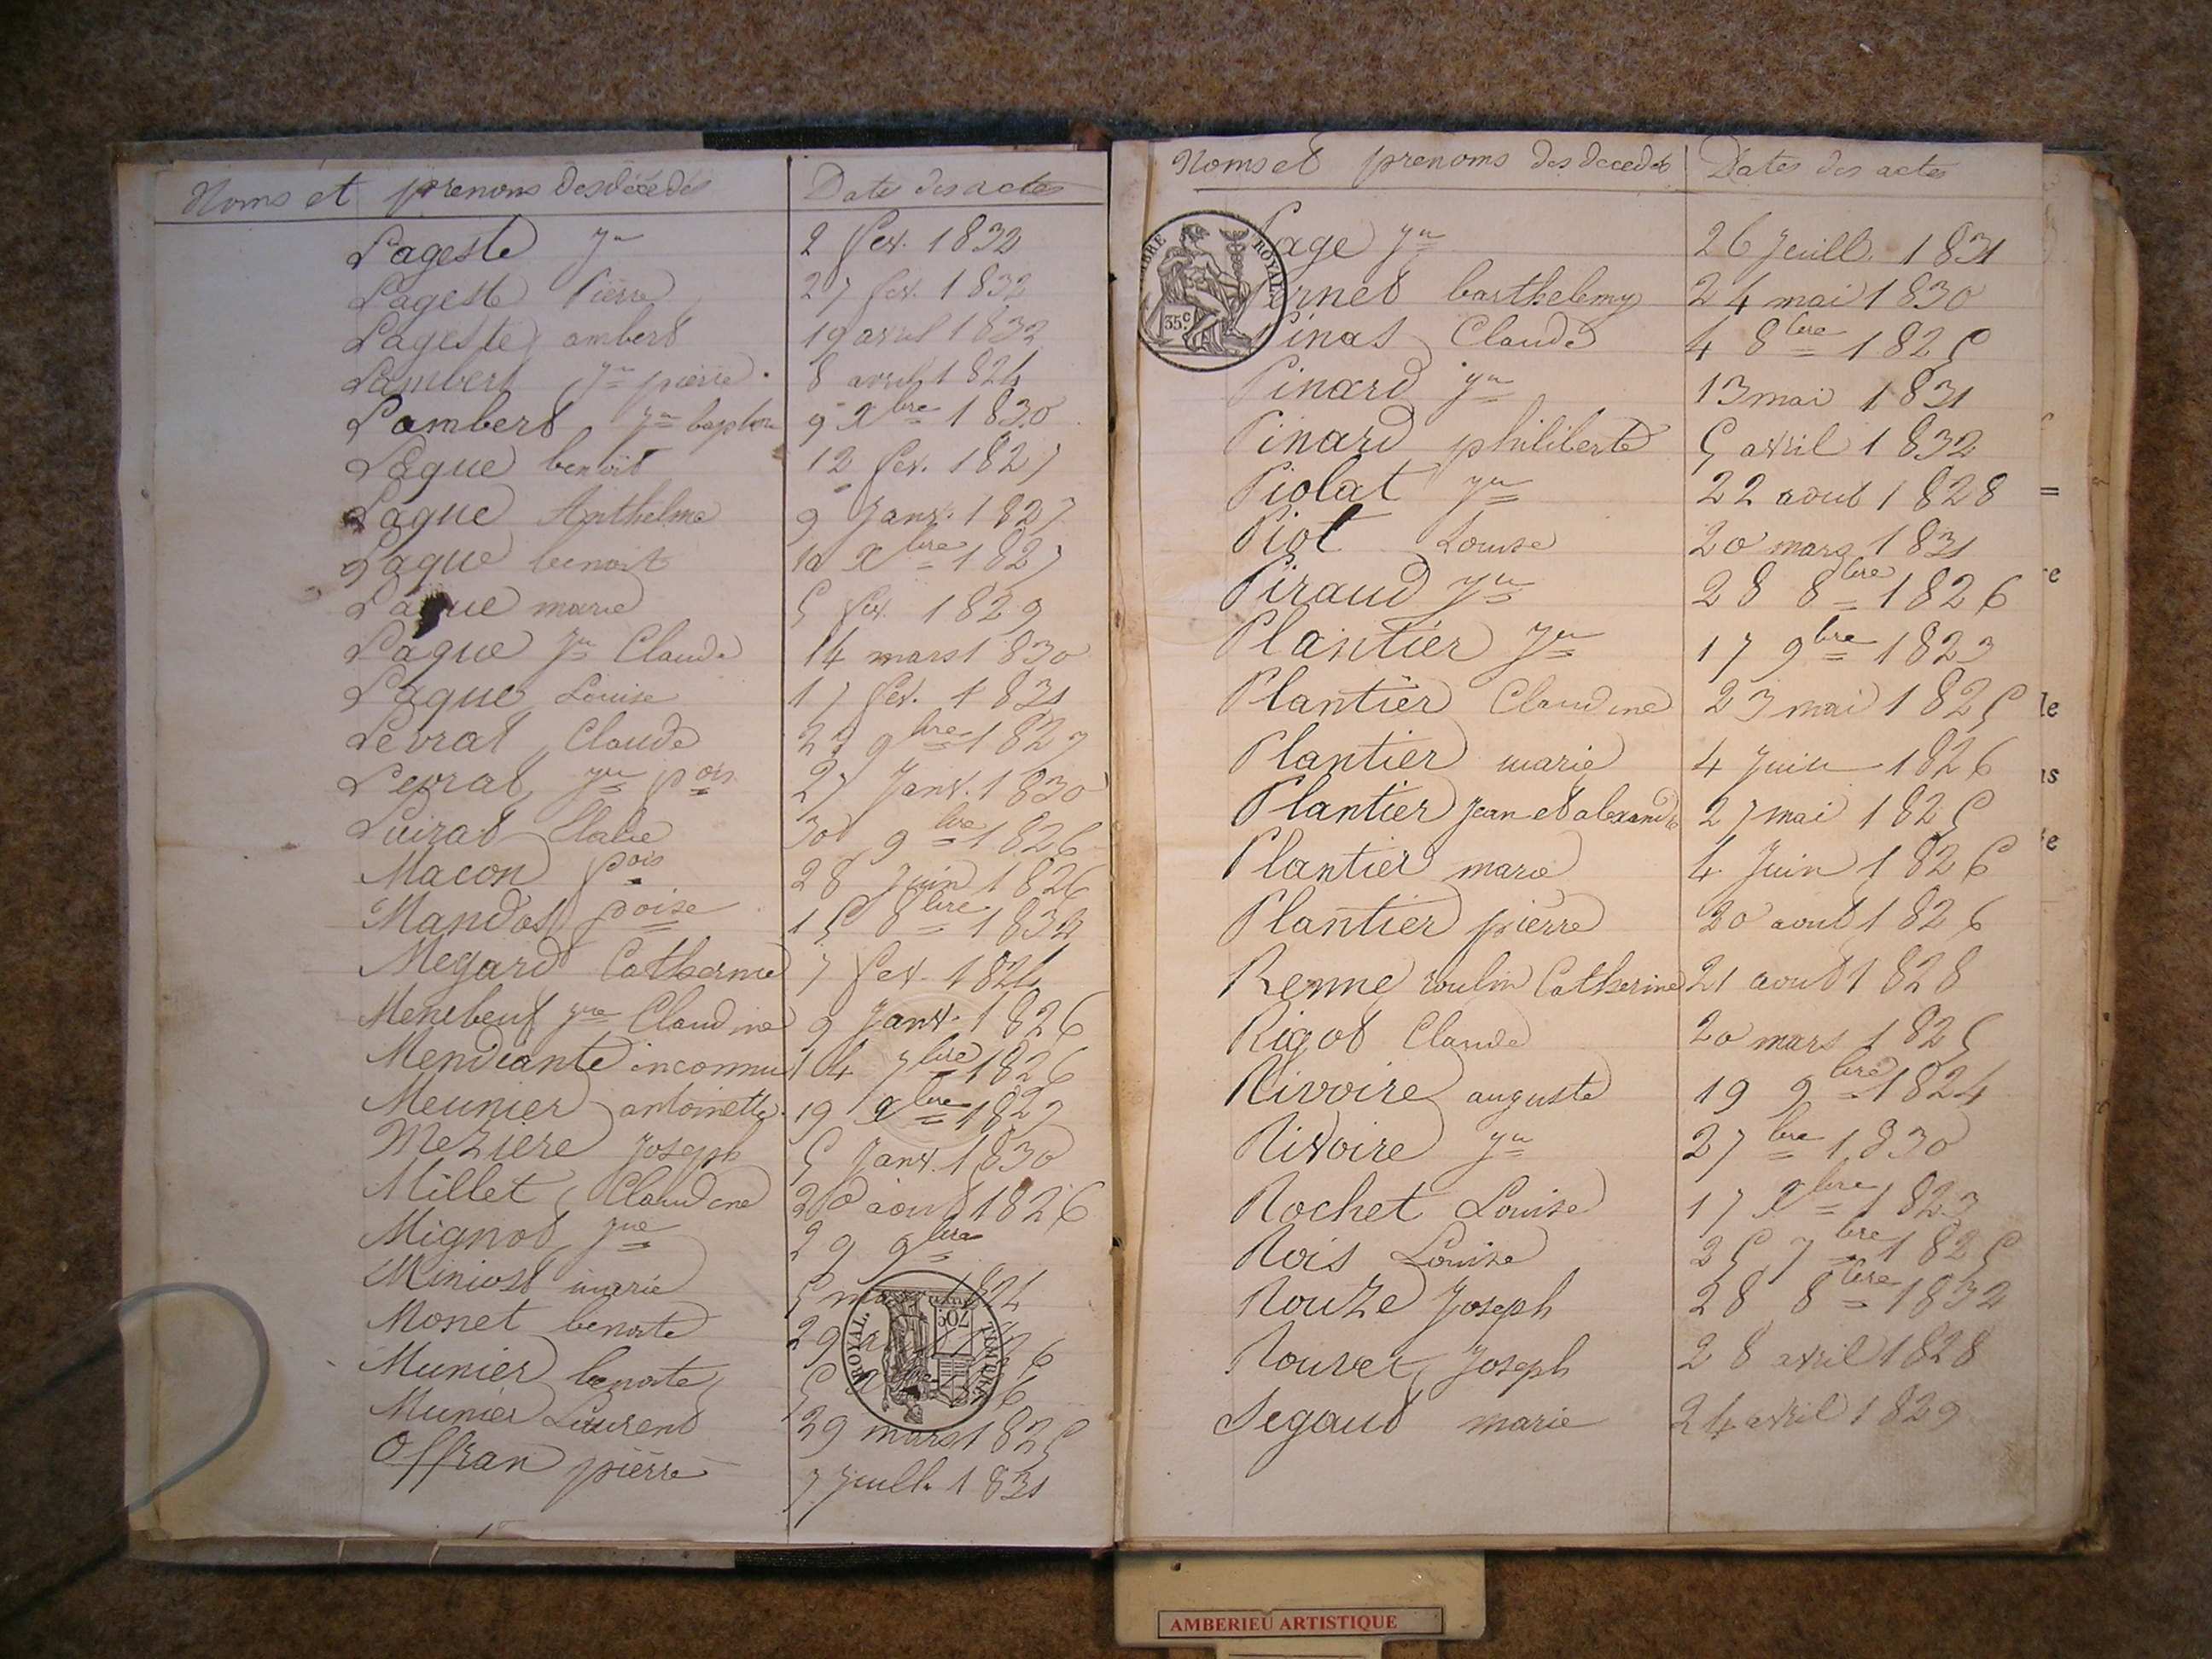 Noms et prenoms des décédés Date des actes
Lageste Jn 2 fev. 1832
Lageste Pierre 27 fev. 1832
Lageste ambert 19 avril 1832
Lambert Jn pierre 8 avril 1824
Lambert Jn baptiste 9 Xbre 1830
Laque benoit 12 fev. 1827
Laque Anthelme 9 Janv. 1827
Laque benoit Xbre 1827
Laque marie 5 fev. 1829
Laque Jn Claude 14 mars 1830
Laque Louise 17 fev. 1831
Levrat Claude 9bre
Levrat Jn fois 27 Janv. 1830
Luirat 30 9bre 1826
Macon fois 28 Juin 1826
Mandot foise 15 8bre
Megard Catherine 7 fev. 1824
Menebeuf Jne Claudine 9 Janv. 1826
Mendiante inconnu 14 7bre 1826
Meunier antoinette 19 Xbre
Meziere Joseph 5 Janv. 1830
Millet Claudine 20 aout 1826
Mignot Jne 29 9bre
Miniost marie 5
Monet benoite 29
Munier benoite 5
Munier Laurent 29 mars 1825
Offran pierre 7 Juill. 1831
Noms et prenoms des decedés Dates des actes
TIMBRE ROYAL
35c
Page Jn 26 Juill. 1831
barthelemy 24 mai 1830
Pinas Claude 4 8bre 1825
Pinard Jn 13 mai 1831
Pinard philiberte 5 avril 1832
Piolat Jn 22 aout 1828
Piot Louise 20 mars 1831
Piraud Jn 28 8bre 1826
Plantier Jn 17 9bre 1823
Plantier Claudine 23 mai 1825
Plantier marie 4 Juin 1826
Plantier Jean et alexandre 27 mai 1825
Plantier marie 4 Juin 1826
Plantier pierre 30 aout 1826
Renne roulin Catherine 21 aout 1828
Rigot Claude 20 mars 1825
Rivoire auguste 19 9bre 1824
Rivoire Jn 27 bre 1830
Rochet Louise 17 Xbre 1823
Rois Louise 25 7bre 1825
Rouze Joseph 28 8bre 1832
Rouvet Joseph 28 avril 1828
Segaud marie 24 avril 1829
ROYAL. TIMBRE
70c
AMBERIEU ARTISTIQUE